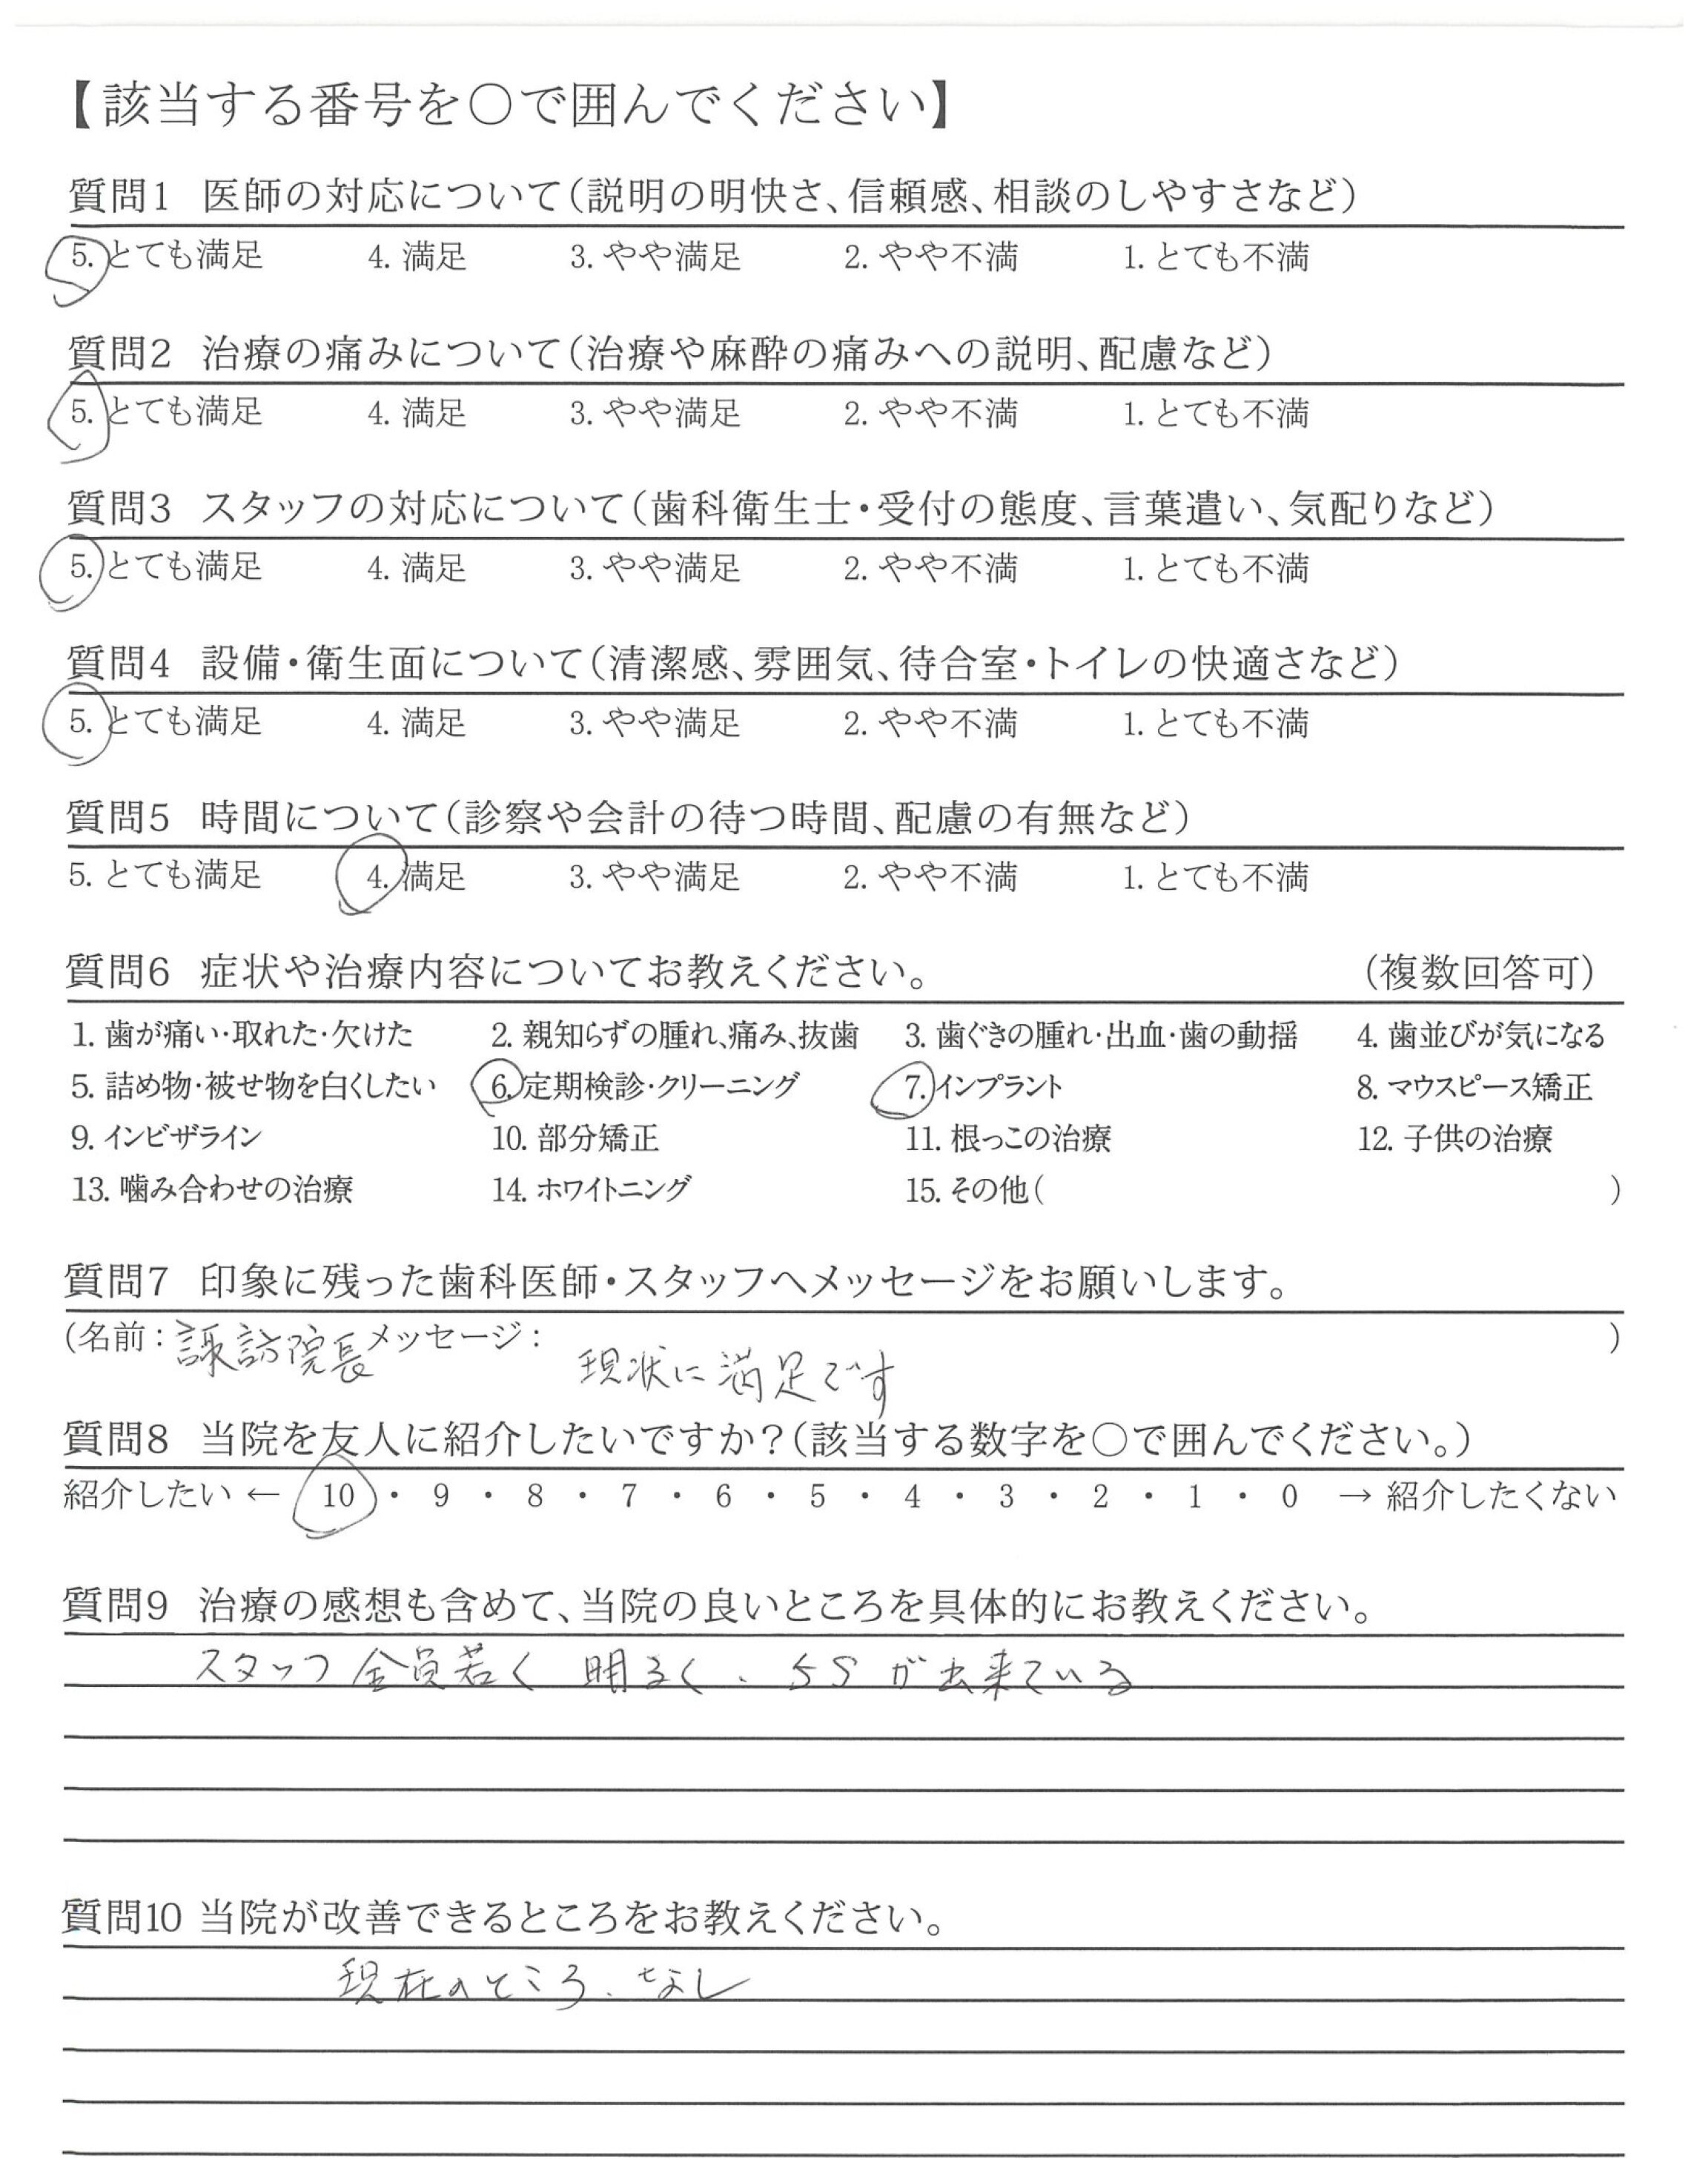 【該当する番号を〇で囲んでください】
質問1 医師の対応について(説明の明快さ、信頼感、相談のしやすさなど)
5. とても満足 4. 満足 3. やや満足 2. やや不満 1. とても不満
質問2 治療の痛みについて(治療や麻酔の痛みへの説明、配慮など)
5. とても満足 4. 満足 3. やや満足 2. やや不満 1. とても不満
質問3 スタッフの対応について(歯科衛生士・受付の態度、言葉遣い、気配りなど)
5. とても満足 4. 満足 3. やや満足 2. やや不満 1. とても不満
質問4 設備・衛生面について(清潔感、雰囲気、待合室・トイレの快適さなど)
5. とても満足 4. 満足 3. やや満足 2. やや不満 1. とても不満
質問5 時間について(診察や会計の待つ時間、配慮の有無など)
5. とても満足 4. 満足 3. やや満足 2. やや不満 1. とても不満
質問6 症状や治療内容についてお教えください。 (複数回答可)
1. 歯が痛い・取れた・欠けた 2. 親知らずの腫れ、痛み、抜歯 3. 歯ぐきの腫れ・出血・歯の動揺 4. 歯並びが気になる
5. 詰め物・被せ物を白くしたい 6. 定期検診・クリーニング 7. インプラント 8. マウスピース矯正
9. インビザライン 10. 部分矯正 11. 根っこの治療 12. 子供の治療
13. 噛み合わせの治療 14. ホワイトニング 15. その他( )
質問7 印象に残った歯科医師・スタッフへメッセージをお願いします。
(名前:諏訪院長 メッセージ: 現状に満足です )
質問8 当院を友人に紹介したいですか?(該当する数字を〇で囲んでください。)
紹介したい ← 10 ・ 9 ・ 8 ・ 7 ・ 6 ・ 5 ・ 4 ・ 3 ・ 2 ・ 1 ・ 0 → 紹介したくない
質問9 治療の感想も含めて、当院の良いところを具体的にお教えください。
スタッフ全員若く 明るく、5Sが出来ている
質問10 当院が改善できるところをお教えください。
現在のところ、なし